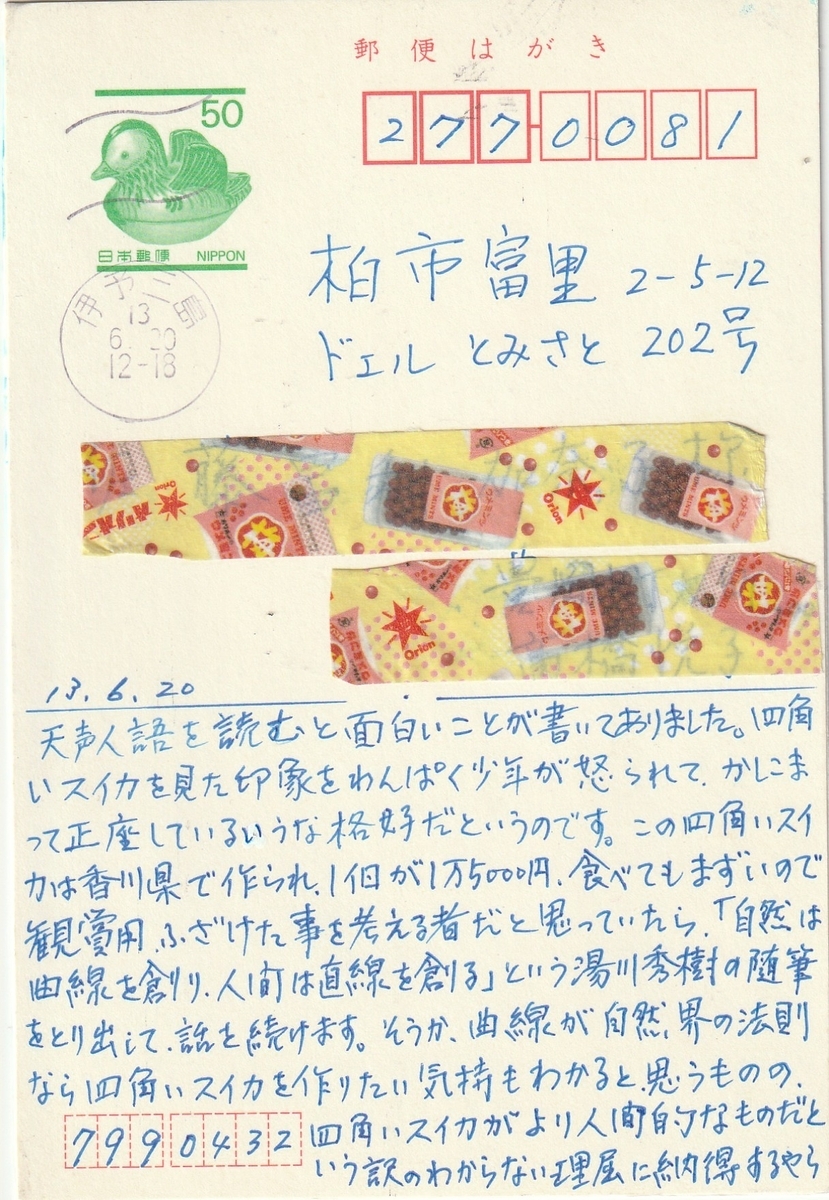 郵便はがき
50
日本郵便 NIPPON
277-0081
伊予三島
13
6. 20
12-18
柏市富里 2-5-12
ドエル とみさと 202号
Orion
Orion
Orion
Orion
13. 6. 20
天声人語を読むと面白いことが書いてありました。四角
いスイカを見た印象をわんぱく少年が怒られて、かしこま
って正座しているいうな格好だというのです。この四角いスイ
カは香川県で作られ、1個が1万5000円、食べてもまずいので
観賞用、ふざけた事を考える者だと思っていたら、「自然は
曲線を創り、人間は直線を創る」という湯川秀樹の随筆
をとり出して、話を続けます。そうか、曲線が自然界の法則
なら四角いスイカを作りたい気持もわかると思うものの、
四角いスイカがより人間的なものだと
いう訳のわからない理屈に納得するやら
7990432